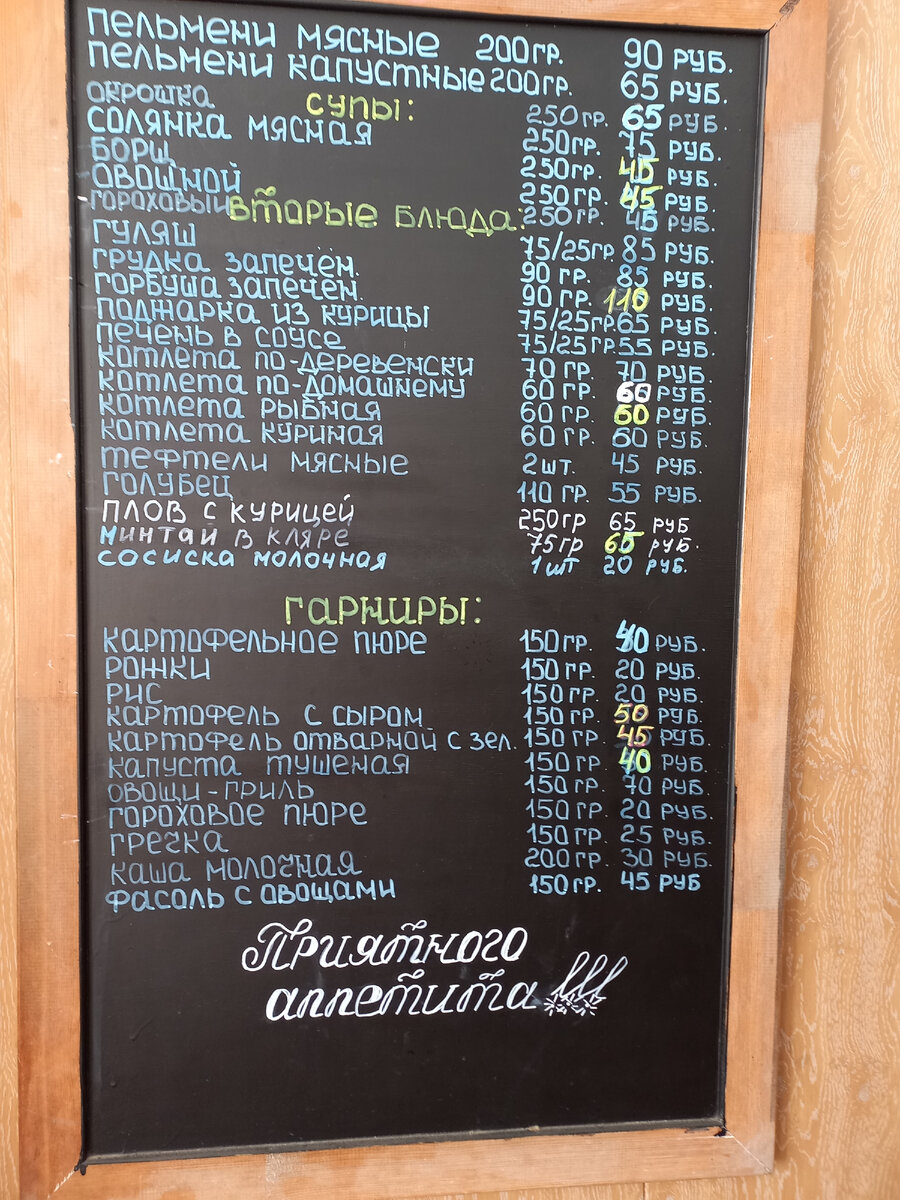 ПЕЛЬМЕНИ МЯСНЫЕ 200ГР. 90 РУБ.
ПЕЛЬМЕНИ КАПУСТНЫЕ 200ГР. 65 РУБ.
СУПЫ:
ОКРОШКА 250 ГР. 65 РУБ.
СОЛЯНКА МЯСНАЯ 250ГР. 75 РУБ.
БОРЩ 250ГР. 45 РУБ.
ОВОЩНОЙ 250ГР. 45 РУБ.
ГОРОХОВЫЙ 250ГР. 45 РУБ.
ВТОРЫЕ БЛЮДА:
ГУЛЯШ 75/25ГР. 85 РУБ.
ГРУДКА ЗАПЕЧЁН. 90 ГР. 85 РУБ.
ГОРБУША ЗАПЕЧЁН. 90 ГР. 110 РУБ.
ПОДЖАРКА ИЗ КУРИЦЫ 75/25ГР. 65 РУБ.
ПЕЧЕНЬ В СОУСЕ 75/25ГР. 55 РУБ.
КОТЛЕТА ПО-ДЕРЕВЕНСКИ 70 ГР. 70 РУБ.
КОТЛЕТА ПО-ДОМАШНЕМУ 60 ГР. 60 РУБ.
КОТЛЕТА РЫБНАЯ 60 ГР. 60 РУБ.
КОТЛЕТА КУРИНАЯ 60 ГР. 60 РУБ.
ТЕФТЕЛИ МЯСНЫЕ 2 ШТ. 45 РУБ.
ГОЛУБЕЦ 110 ГР. 55 РУБ.
ПЛОВ С КУРИЦЕЙ 250ГР 65 РУБ
МИНТАЙ В КЛЯРЕ 75ГР 65 РУБ.
СОСИСКА МОЛОЧНАЯ 1 ШТ 20 РУБ.
ГАРНИРЫ:
КАРТОФЕЛЬНОЕ ПЮРЕ 150ГР. 40 РУБ.
РОЖКИ 150ГР. 20 РУБ.
РИС 150ГР. 20 РУБ.
КАРТОФЕЛЬ С СЫРОМ 150 ГР. 50 РУБ.
КАРТОФЕЛЬ ОТВАРНОЙ С ЗЕЛ. 150 ГР. 45 РУБ.
КАПУСТА ТУШЕНАЯ 150ГР. 40 РУБ.
ОВОЩИ-ГРИЛЬ 150ГР. 70 РУБ.
ГОРОХОВОЕ ПЮРЕ 150ГР. 20 РУБ.
ГРЕЧКА 150ГР. 25 РУБ.
КАША МОЛОЧНАЯ 200ГР. 30 РУБ.
ФАСОЛЬ С ОВОЩАМИ 150ГР. 45 РУБ
Приятного
аппетита!!!